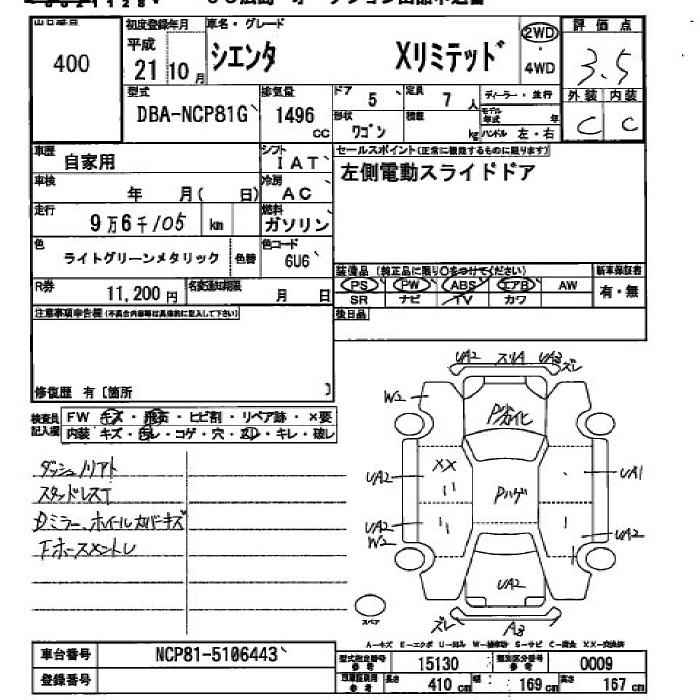 400
初度登録年月
平成
21 10 月
車名・グレード
シエンタ Xリミテッド
2WD
4WD
評価点
3.5
外装 内装
C C
型式
DBA-NCP81G
排気量
1496
cc
ドア 5
定員 7 人
形状 ワゴン
積載 kg
ディーラー・並行
モデル年式 年
ハンドル 左・右
車歴 自家用
シフト
IAT
車検 年 月( 日)
冷房
AC
走行 9万6千105 km
燃料
ガソリン
色 ライトグリーンメタリック 色替
色コード
6U6
R券 11,200 円
名変通知期限 月 日
セールスポイント(正常に機能するものに限ります)
左側電動スライドドア
装備品(純正品に限り〇をつけてください)
新車保証書
PS PW ABS エアB AW
有・無
SR ナビ TV カワ
後日品
注意事項申告欄(不具合内容等は具体的に記入して下さい)
修復歴 有〔箇所 〕
検査員記入欄
FW キズ・飛石・ヒビ割・リペア跡・×要
内装 キズ・ヨレ・コゲ・穴・・キレ・破レ
ダッシュノリアト
スタッドレスT
Dミラー、ホイールカバーキズ
UA2 スリA UA3 ズレ
W2
XX
UA2
UA1
UA2
W2
UA2
UA2
ズレ A3
スペア
車台番号 NCP81-5106443
登録番号
型式指定番号 参考 15130
類別区分番号 参考 0009
長さ 410 cm
幅 169 cm
高さ 167 cm